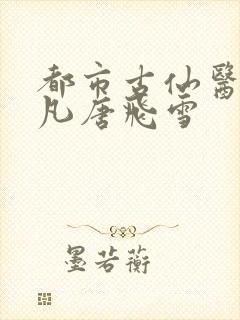 都市古仙醫
凡唐飛雪
墨若蘅